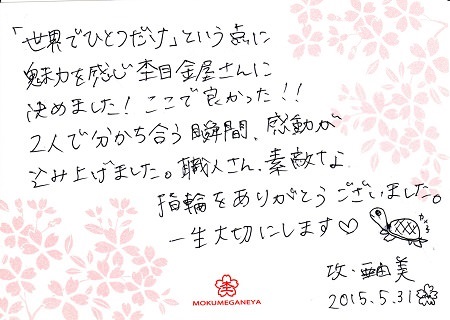 「世界でひとつだけ」という点に
魅力を感じ杢目金屋さんに
決めました！ここで良かった！！
2人で分かち合う瞬間、感動が
込み上げました。職人さん、素敵な
指輪をありがとうございました。
一生大切にします♡
攻・亜由美
2015.5.31
杢
MOKUMEGANEYA